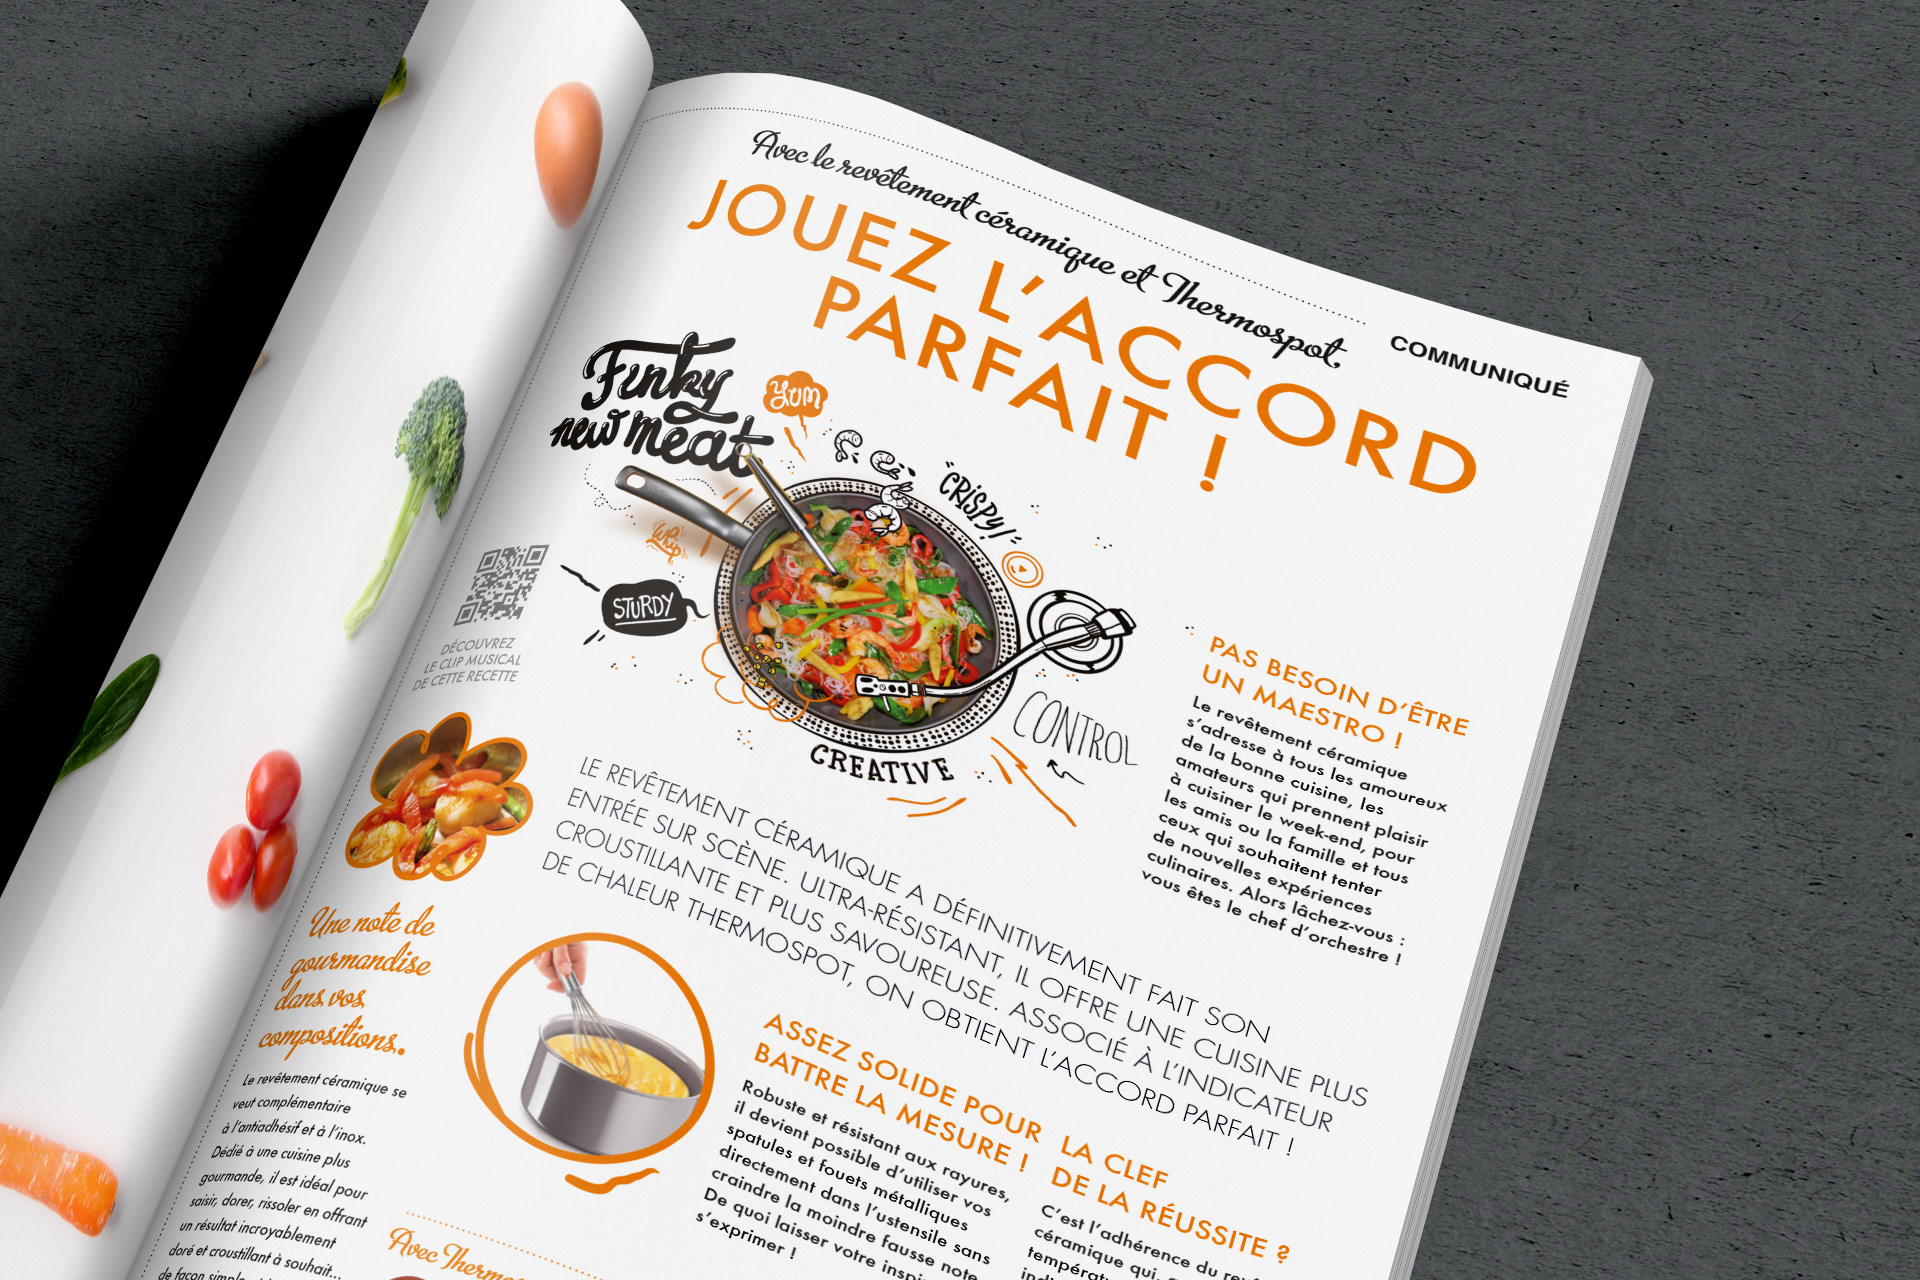 Avec le revêtement céramique et Thermospot,
COMMUNIQUÉ
JOUEZ L'ACCORD
PARFAIT !
Funky
new meat
Yum
"CRISPY!"
Whip
STURDY
CONTROL
CREATIVE
DÉCOUVREZ
LE CLIP MUSICAL
DE CETTE RECETTE
PAS BESOIN D'ÊTRE
UN MAESTRO !
Le revêtement céramique
s'adresse à tous les amoureux
de la bonne cuisine, les
amateurs qui prennent plaisir
à cuisiner le week-end, pour
les amis ou la famille et tous
ceux qui souhaitent tenter
de nouvelles expériences
culinaires. Alors lâchez-vous :
vous êtes le chef d'orchestre !
LE REVÊTEMENT CÉRAMIQUE A DÉFINITIVEMENT FAIT SON
ENTRÉE SUR SCÈNE. ULTRA-RÉSISTANT, IL OFFRE UNE CUISINE PLUS
CROUSTILLANTE ET PLUS SAVOUREUSE. ASSOCIÉ À L'INDICATEUR
DE CHALEUR THERMOSPOT, ON OBTIENT L'ACCORD PARFAIT !
Une note de
gourmandise
dans vos
compositions.
Le revêtement céramique se
veut complémentaire
à l'antiadhésif et à l'inox.
Dédié à une cuisine plus
gourmande, il est idéal pour
saisir, dorer, rissoler en offrant
un résultat incroyablement
doré et croustillant à souhait...
de façon simple
ASSEZ SOLIDE POUR
BATTRE LA MESURE !
Robuste et résistant aux rayures,
il devient possible d'utiliser vos
spatules et fouets métalliques
directement dans l'ustensile sans
craindre la moindre fausse note.
De quoi laisser votre inspi
s'exprimer !
LA CLEF
DE LA RÉUSSITE ?
C'est l'adhérence du rev
céramique qui,
températ
Avec Thermo